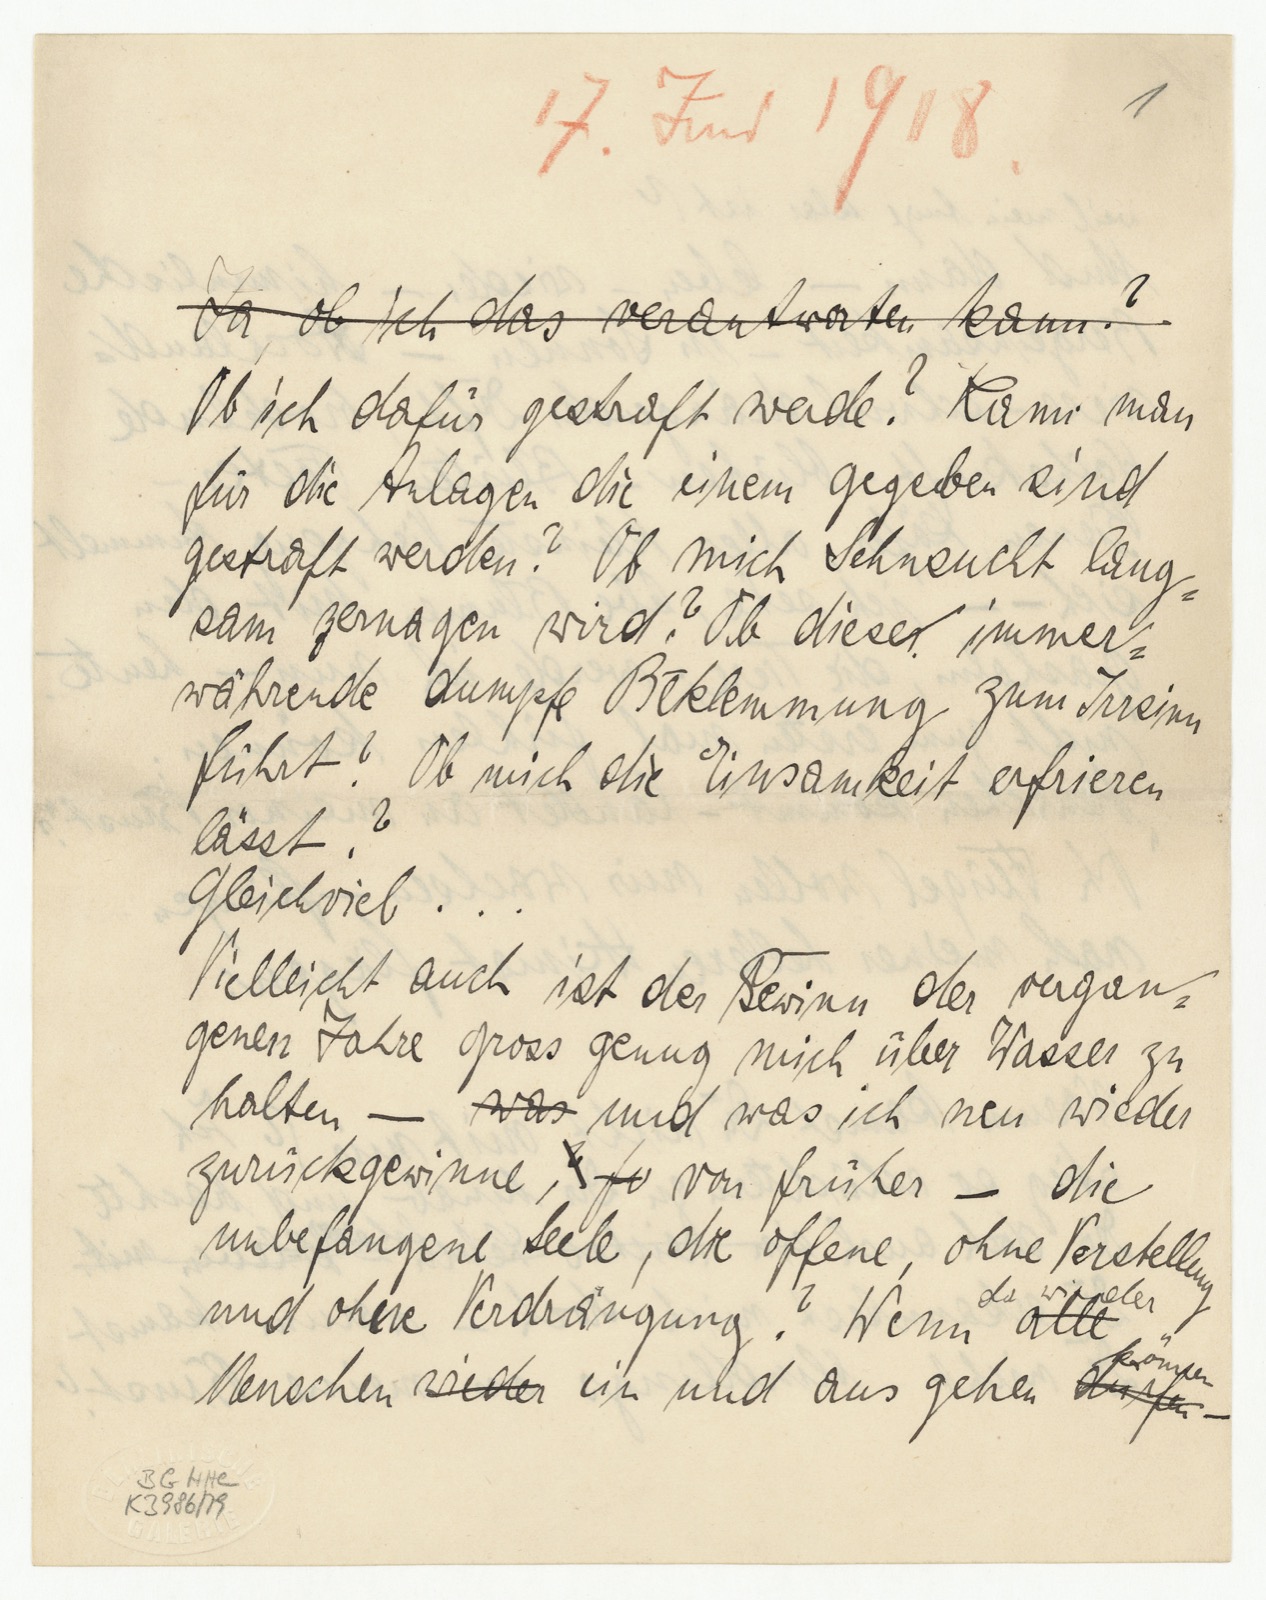 17. Juni 1918.
1
Ja, ob ich das verantworten kann?
Ob ich dafür gestraft werde? Kann man
für die Anlagen die einem gegeben sind
gestraft werden? Ob mich Sehnsucht lang=
sam zernagen wird? Ob diese immer=
währende dumpfe Beklemmung zum Irrsinn
führt? Ob mich die Einsamkeit erfrieren
lässt?
Gleichviel . . .
Vielleicht auch ist der Gewinn der vergan=
genen Jahre gross genug mich über Wasser zu
halten — was und was ich neu wieder
zurückgewinne, von früher — die
unbefangene Seele, die offene, ohne Verstellung
und ohne Verdrängung? Wenn alle
da wieder
Menschen wieder ein und aus gehen dürfen —
können
BG HHC
K3986/79